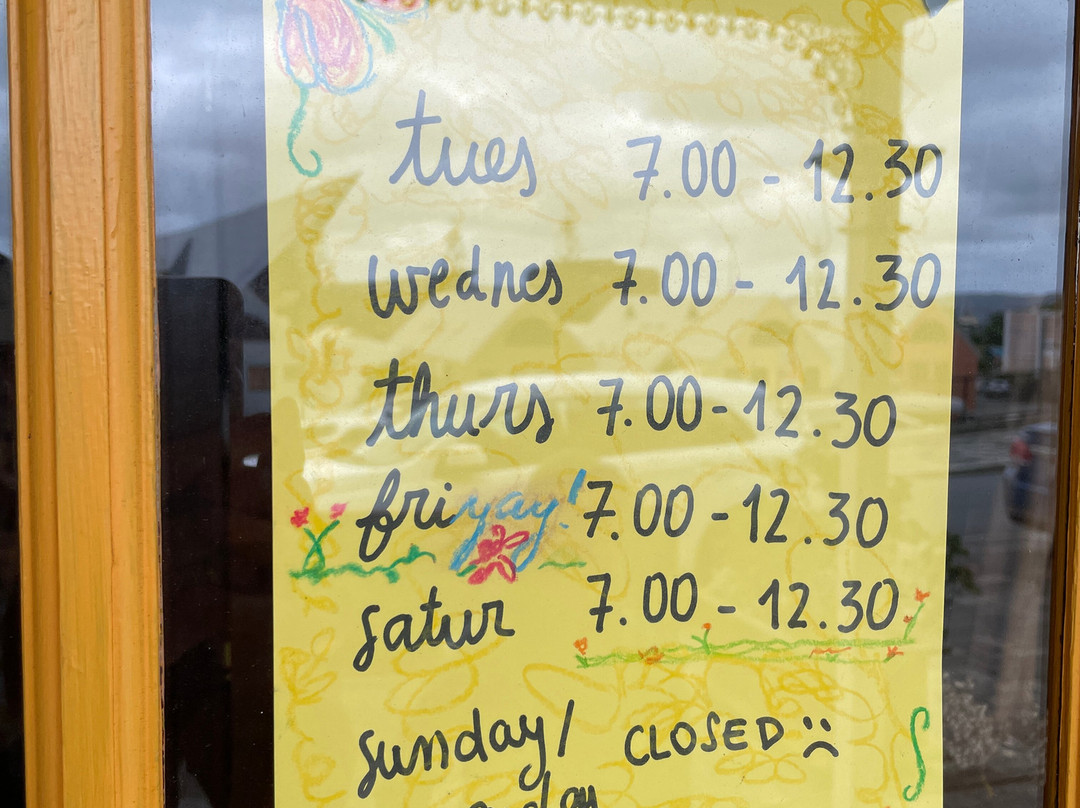 tues 7.00 - 12.30
wednes 7.00 - 12.30
thurs 7.00 - 12.30
friyay! 7.00 - 12.30
satur 7.00 - 12.30
sunday/ CLOSED :(